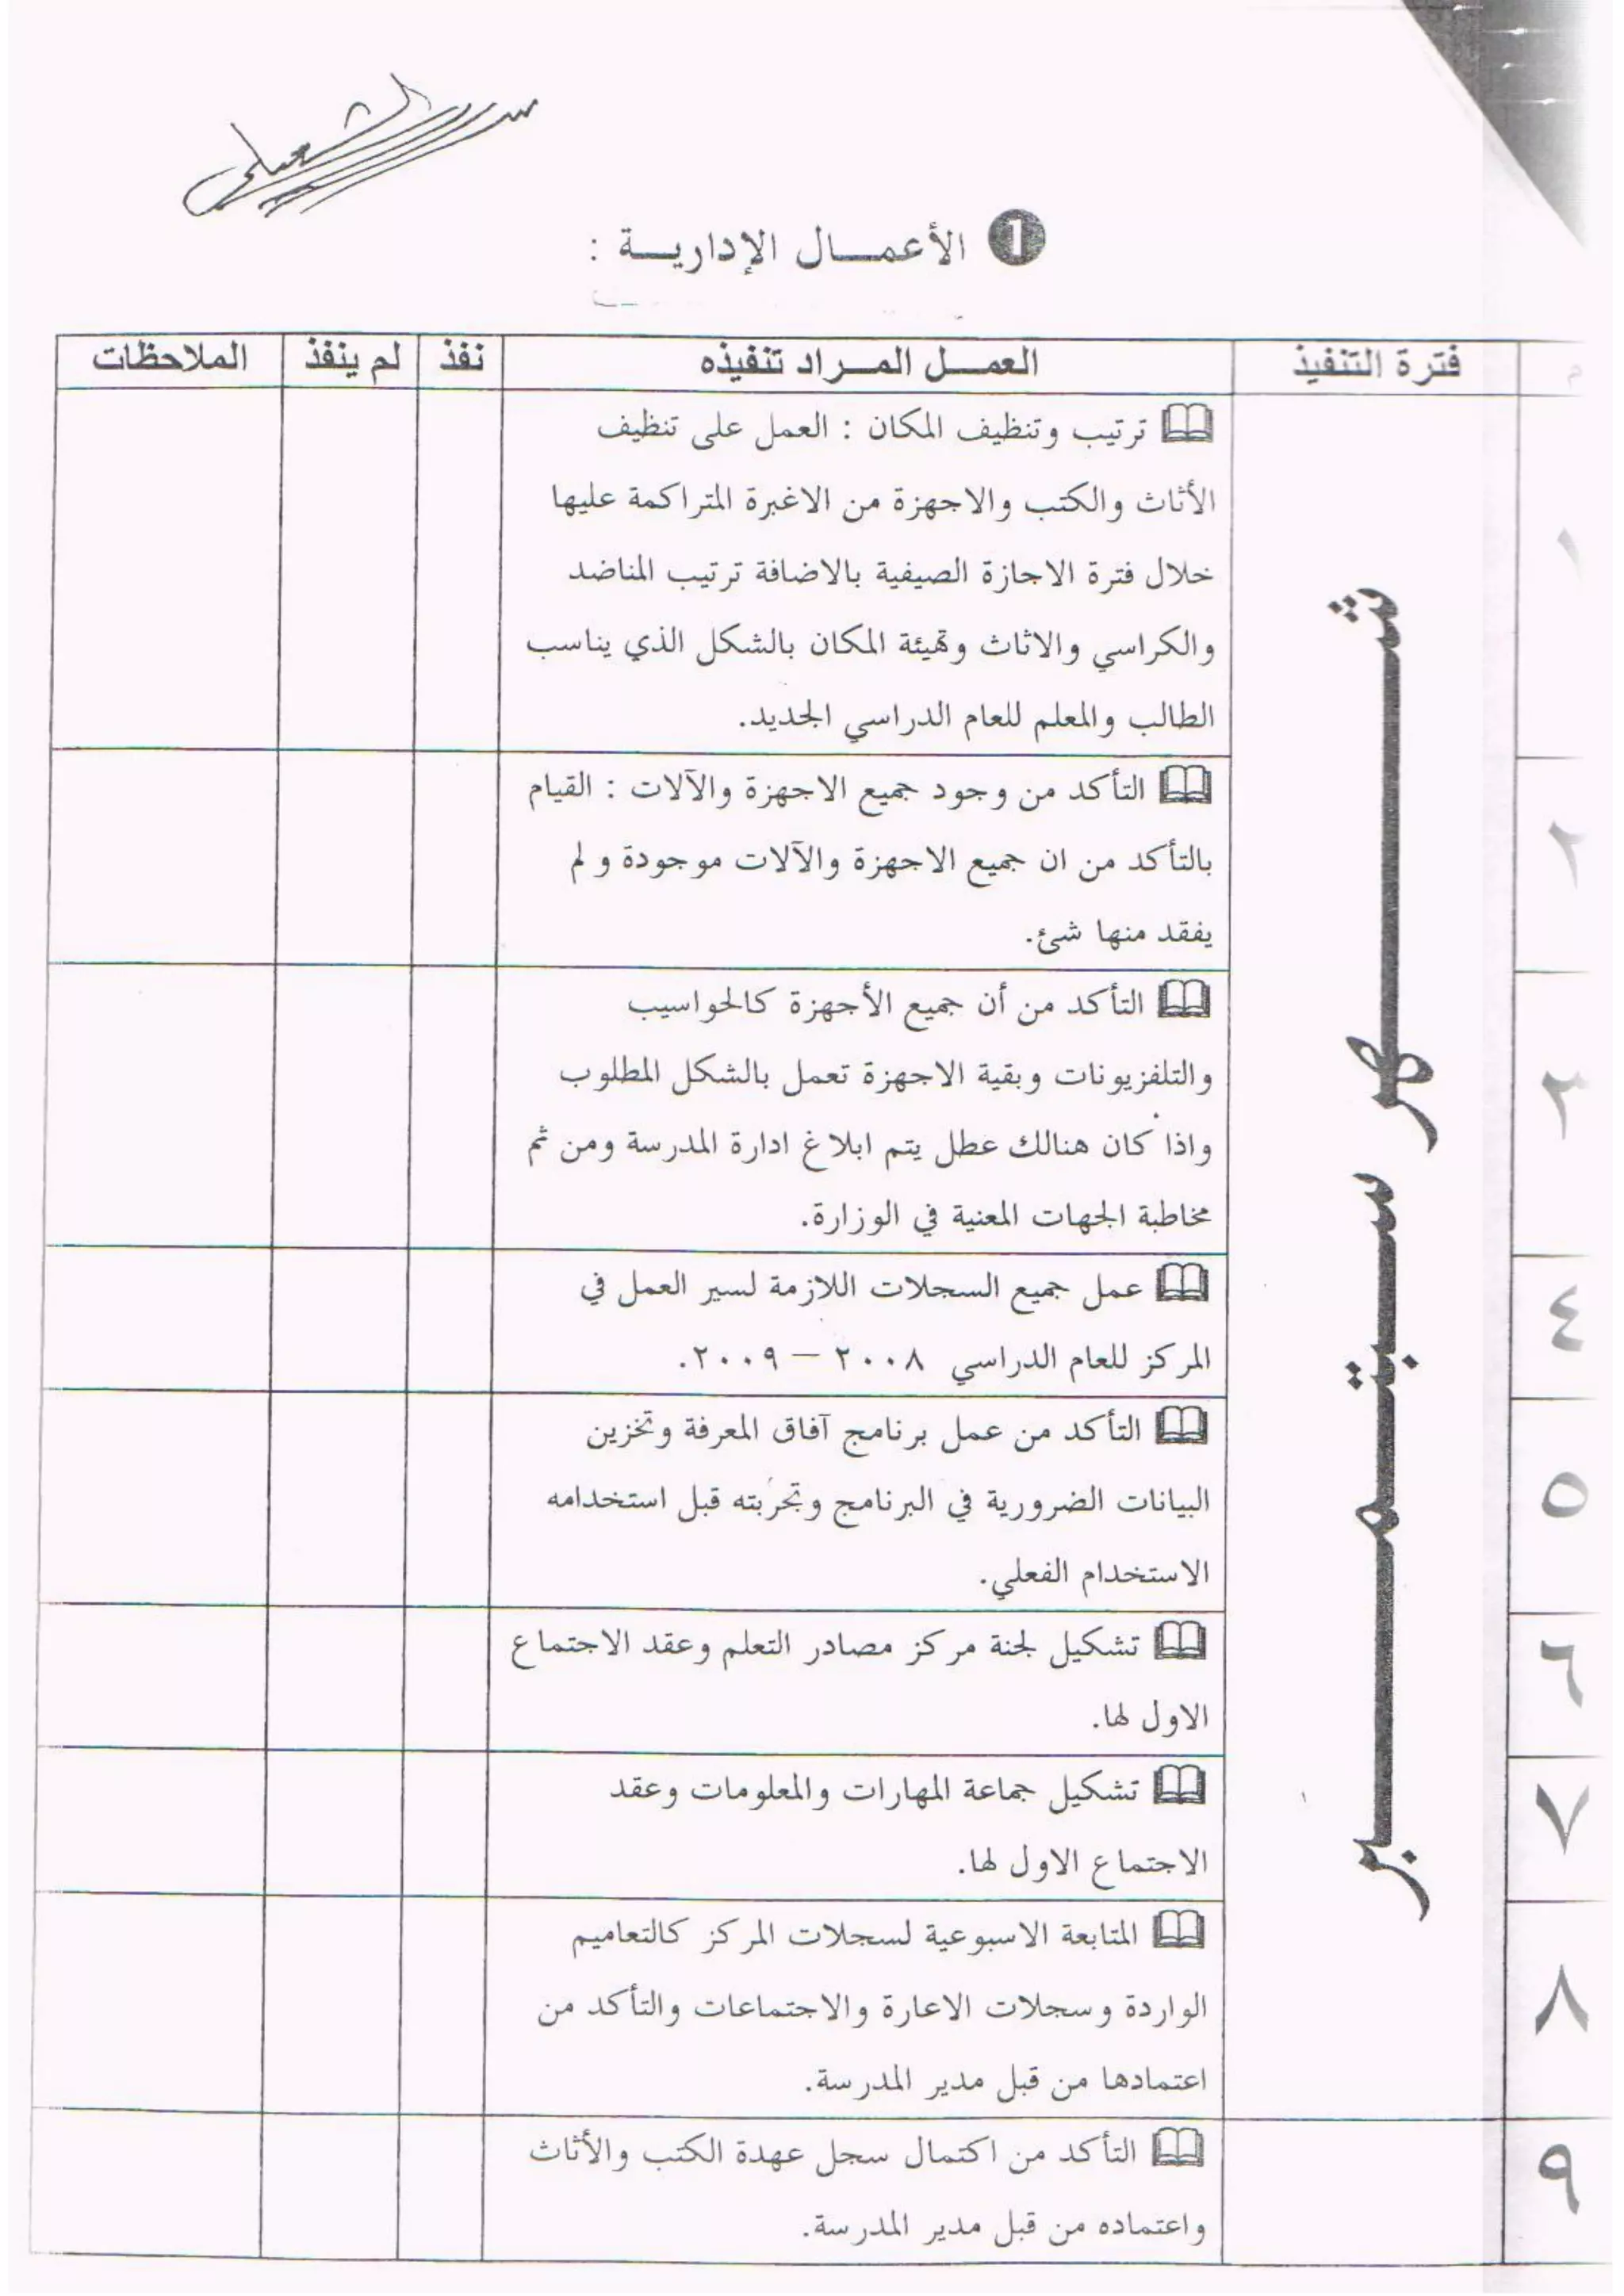 الشعيلي
❶ الأعمـــال الإداريـــة :
م فترة التنفيذ العمـــل المـــراد تنفيذه نفذ لم ينفذ الملاحظات
شـــهر سبتمـــبر
١
ترتيب وتنظيف المكان : العمل على تنظيف
الأثاث والكتب والاجهزة من الاغبرة المتراكمة عليها
خلال فترة الاجازة الصيفية بالاضافة ترتيب المناضد
والكراسي والاثاث وتهيئة المكان بالشكل الذي يناسب
الطالب والمعلم للعام الدراسي الجديد.
٢
التأكد من وجود جميع الاجهزة والآلات : القيام
بالتأكد من ان جميع الاجهزة والآلات موجودة و لم
يفقد منها شئ.
٣
التأكد من أن جميع الأجهزة كالحواسيب
والتلفزيونات وبقية الاجهزة تعمل بالشكل المطلوب
واذا كان هنالك عطل يتم ابلاغ ادارة المدرسة ومن ثم
مخاطبة الجهات المعنية في الوزارة.
٤
عمل جميع السجلات اللازمة لسير العمل في
المركز للعام الدراسي ٢٠٠٨ – ٢٠٠٩.
٥
التأكد من عمل برنامج آفاق المعرفة وتخزين
البيانات الضرورية في البرنامج وتجربته قبل استخدامه
الاستخدام الفعلي.
٦
تشكيل لجنة مركز مصادر التعلم وعقد الاجتماع
الاول لها.
٧
تشكيل جماعة المهارات والمعلومات وعقد
الاجتماع الاول لها.
٨
المتابعة الاسبوعية لسجلات المركز كالتعاميم
الواردة وسجلات الاعارة والاجتماعات والتأكد من
اعتمادها من قبل مدير المدرسة.
٩
التأكد من اكتمال سجل عهدة الكتب والأثاث
واعتماده من قبل مدير المدرسة.